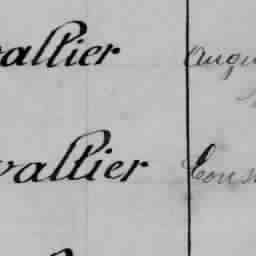 allier Augu
vallier Cons